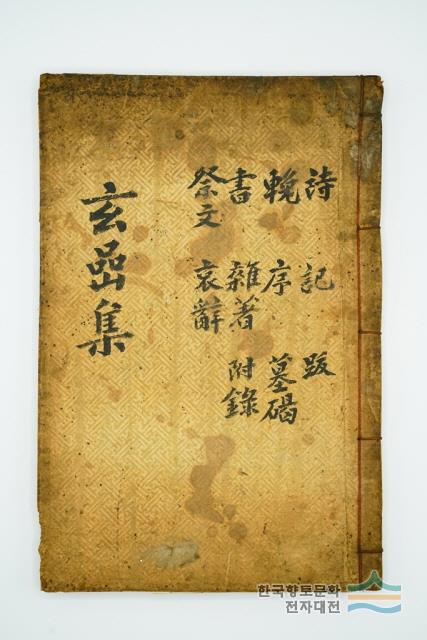 詩 記 跋
輓 序 墓碣
書 雜著 附錄
祭文 哀辭
玄嵒集
한국향토문화
전자대전